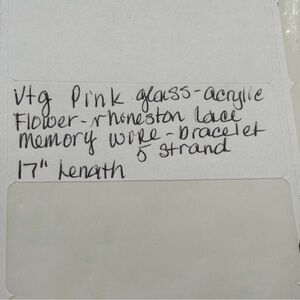 Vtg Pink glass-acrylic
Flower-rhineston lace
Memory wire-bracelet
5 strand
17" Length